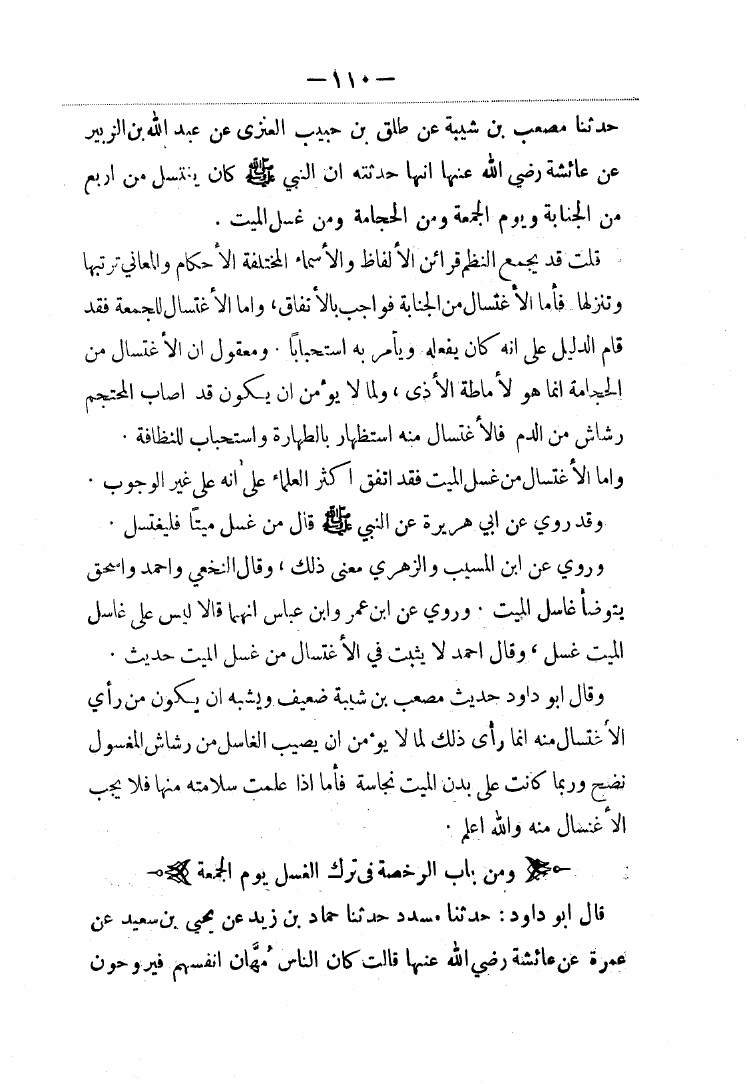 —١١٠—
حدثنا مصعب بن شيبة عن طلق بن حبيب العنزى عن عبد الله بن الزبير
عن عائشة رضي الله عنها انها حدثته ان النبي ﷺ كان يغتسل من اربع
من الجنابة ويوم الجمعة ومن الحجامة ومن غسل الميت .
قلت قد يجمع النظم قرائن الألفاظ والأسماء المختلفة الأحكام والمعاني ترتبها
وتنزلها فأما الأغتسال من الجنابة فواجب بالأتفاق، واما الأغتسال للجمعة فقد
قام الدليل على انه كان يفعله ويأمر به استحبابًا . ومعقول ان الأغتسال من
الحجامة انما هو لأماطة الأذى ، ولما لا يؤمن ان يكون قد اصاب المحتجم
رشاش من الدم فالأغتسال منه استظهار بالطهارة واستحباب للنظافة .
واما الأغتسال من غسل الميت فقد اتفق اكثر العلماء على انه على غير الوجوب .
وقد روي عن ابي هريرة عن النبي ﷺ قال من غسل ميتًا فليغتسل .
وروي عن ابن المسيب والزهري معنى ذلك ، وقال النخعي واحمد واسحق
يتوضأ غاسل الميت . وروي عن ابن عمر وابن عباس انهما قالا ليس على غاسل
الميت غسل ، وقال احمد لا يثبت في الأغتسال من غسل الميت حديث .
وقال ابو داود حديث مصعب بن شيبة ضعيف ويشبه ان يكون من رأي
الأغتسال منه انما رأى ذلك لما لا يؤمن ان يصيب الغاسل من رشاش المغسول
نضح وربما كانت على بدن الميت نجاسة فأما اذا علمت سلامته منها فلا يجب
الأغتسال منه والله اعلم .
ومن باب الرخصة فى ترك الغسل يوم الجمعة
قال ابو داود : حدثنا مسدد حدثنا حماد بن زيد عن يحيى بن سعيد عن
عمرة عن عائشة رضي الله عنها قالت كان الناس مُهَّان انفسهم فيروحون